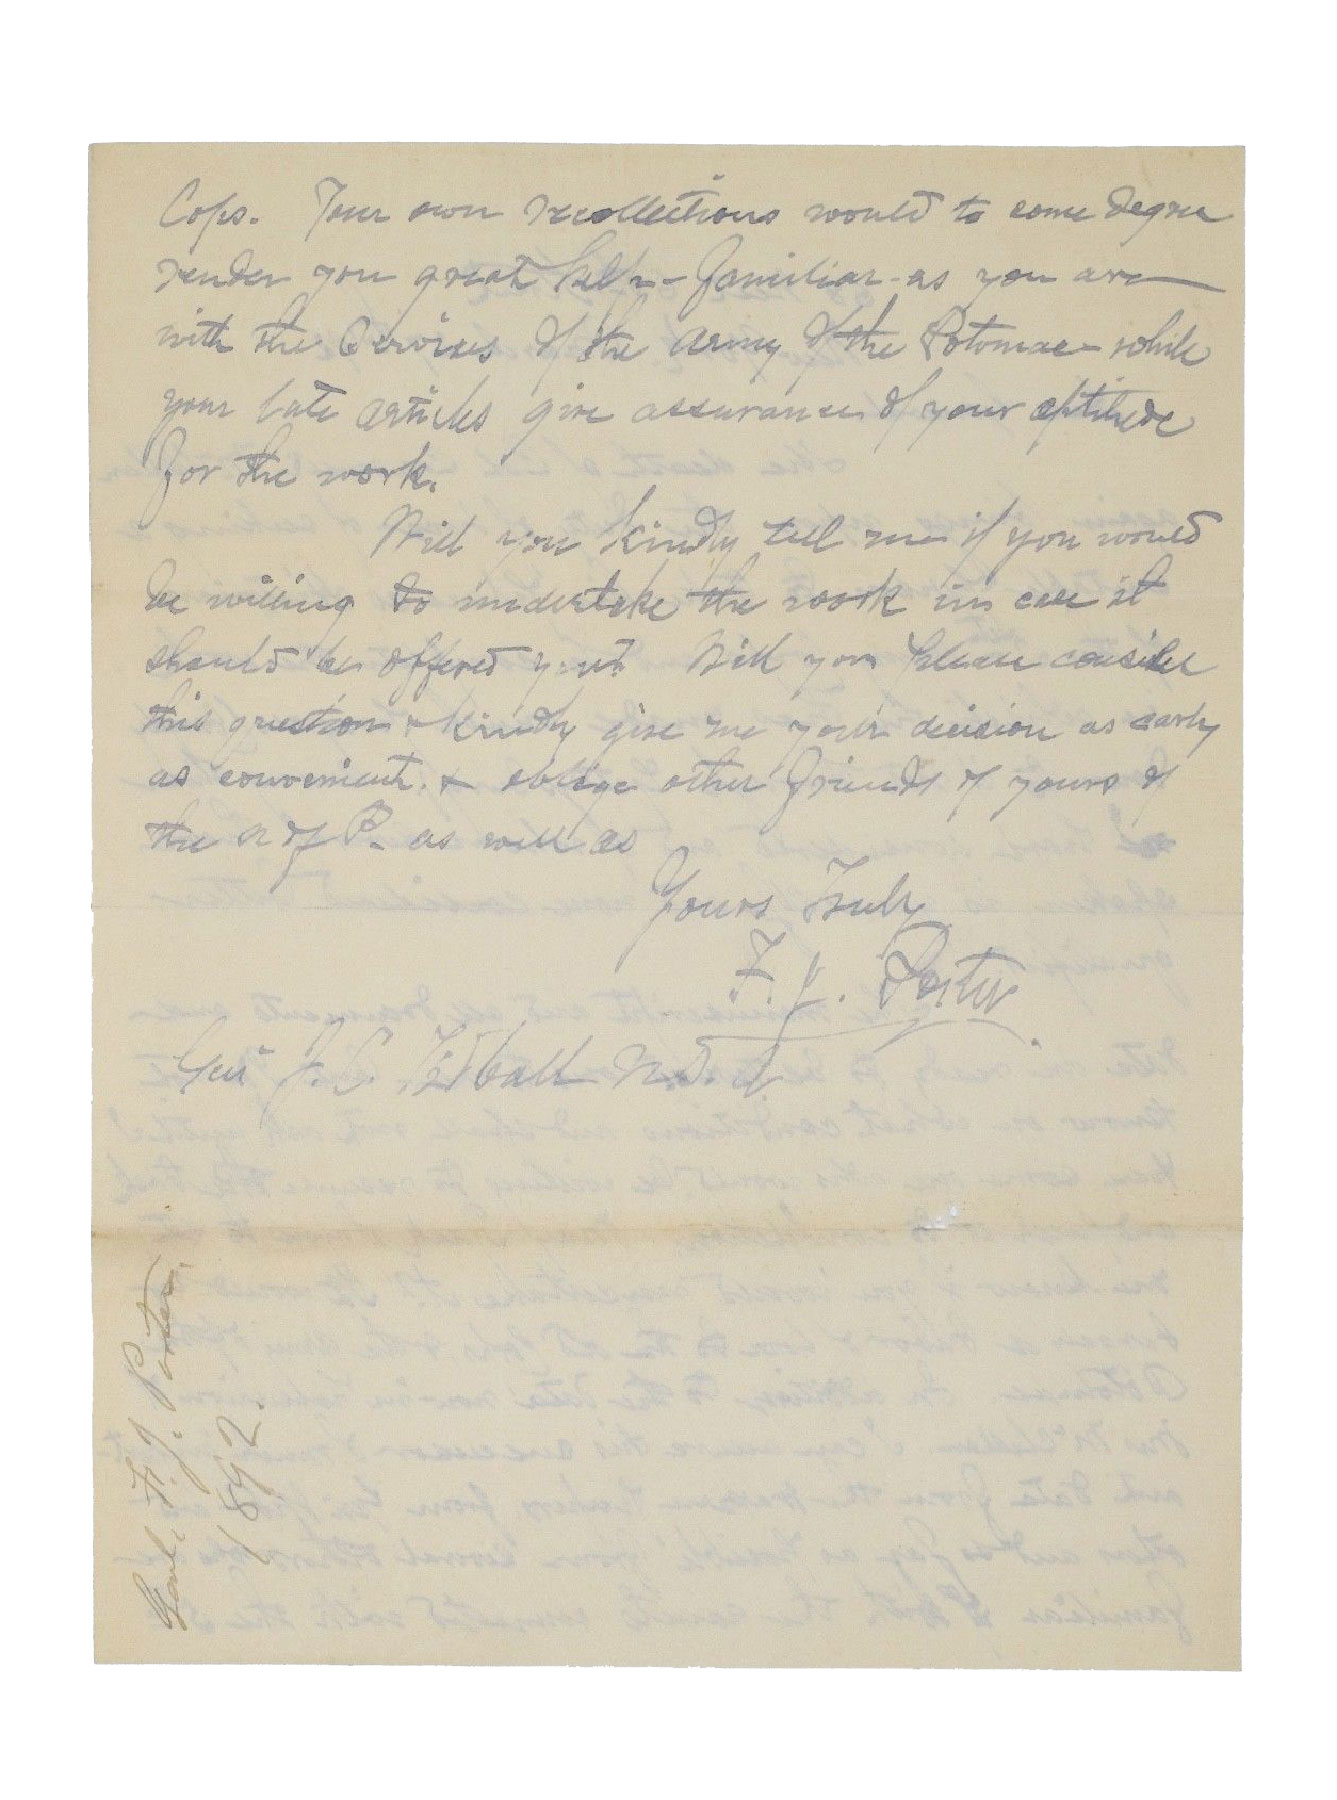 Cops. Your own recollections would to some degree
render you great help - familiar - as you are
with the services of the Army of the Potomac - while
your late articles give assurance of your aptitude
for the work.
Will you kindly tell me if you would
be willing to undertake the work in case it
should be offered you? Will you please consider
this question & kindly give me your decision as early
as convenient. & oblige other friends of yours of
the A of P. as well as
Yours Truly
F. J. Porter
Gen J. C. Tidball U.S. A
Genl. F. J. Porter.
1892.